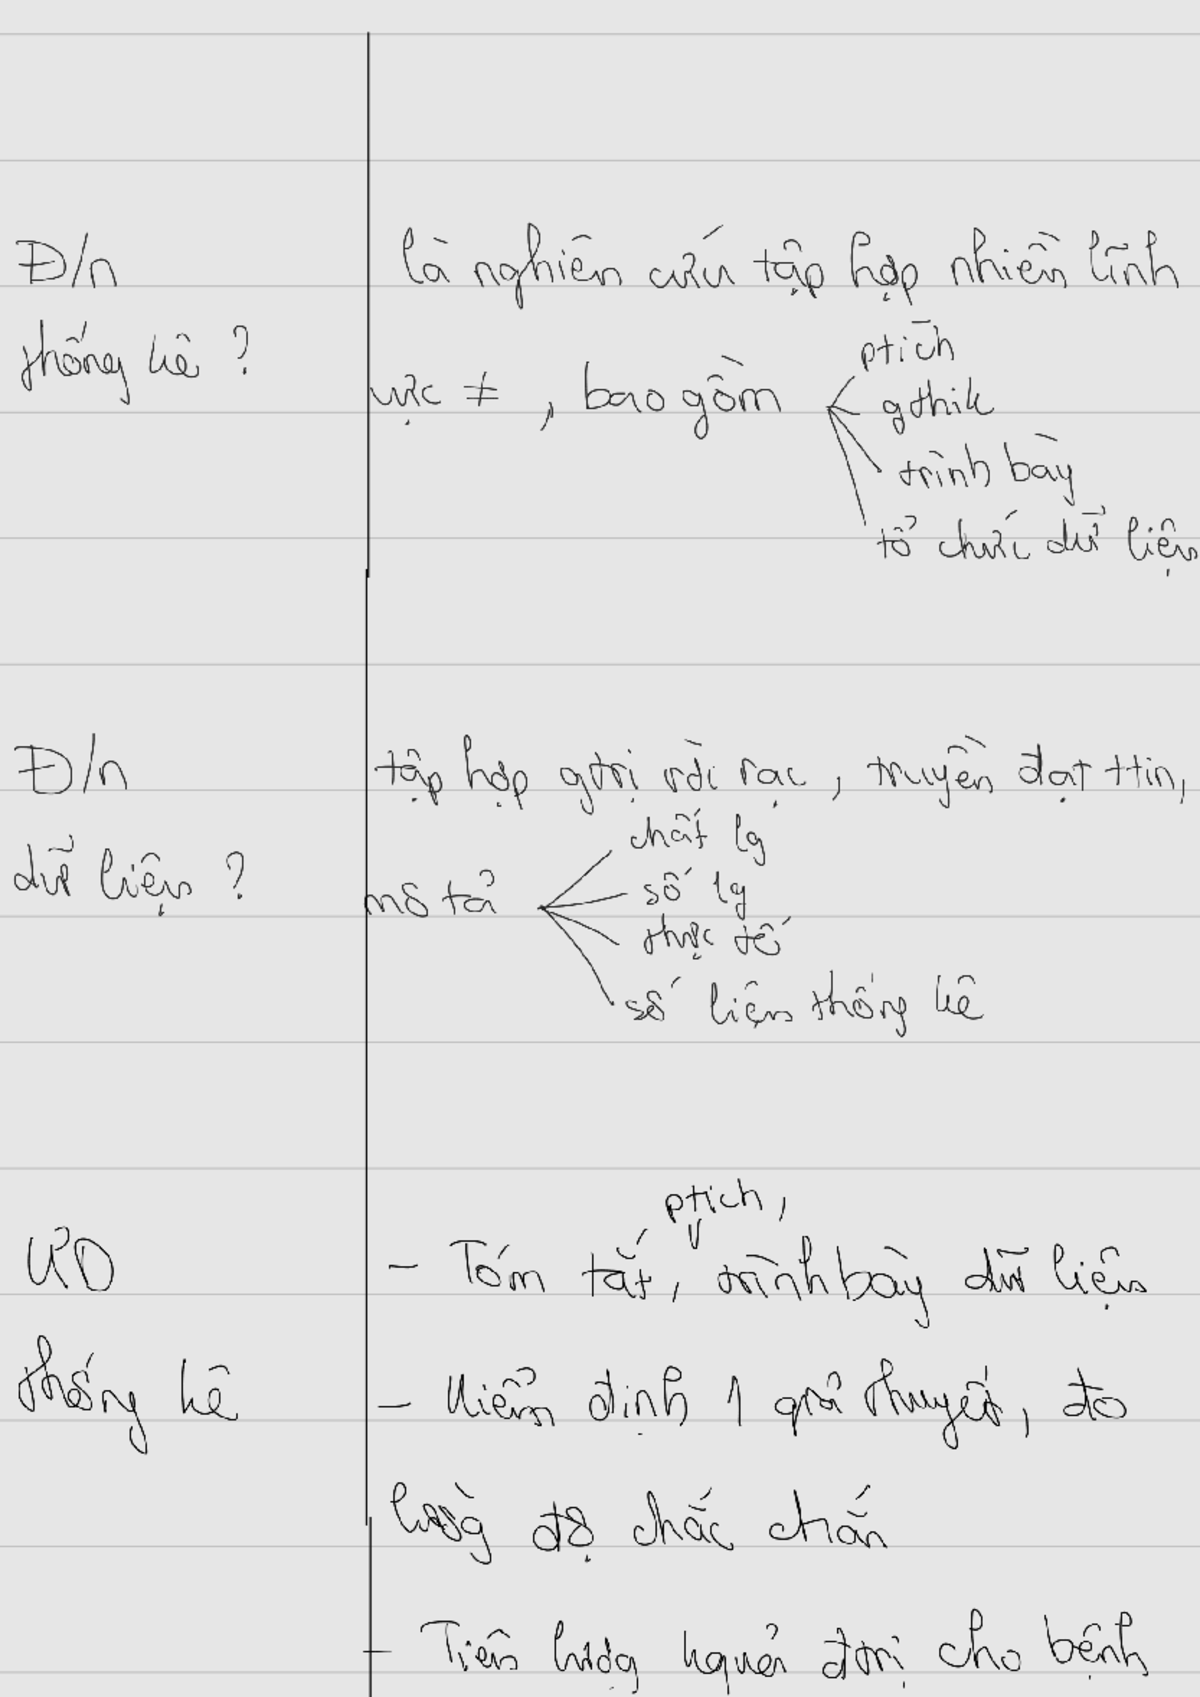 Đ/n
thống kê ?
là nghiên cứu tập hợp nhiều lĩnh
vực ≠ , bao gồm
ptích
gthik
trình bày
tổ chức dữ liệu
Đ/n
dữ liệu ?
tập hợp gtrị rời rạc, truyền đạt ttin,
mô tả
chất lg
số lg
thực tế
số liệu thống kê
ƯD
thống kê
ptich,
- Tóm tắt, trình bày dữ liệu
- Kiểm định 1 giả thuyết, đo
lường độ chắc chắn
- Tiên lượng kquả đtrị cho bệnh